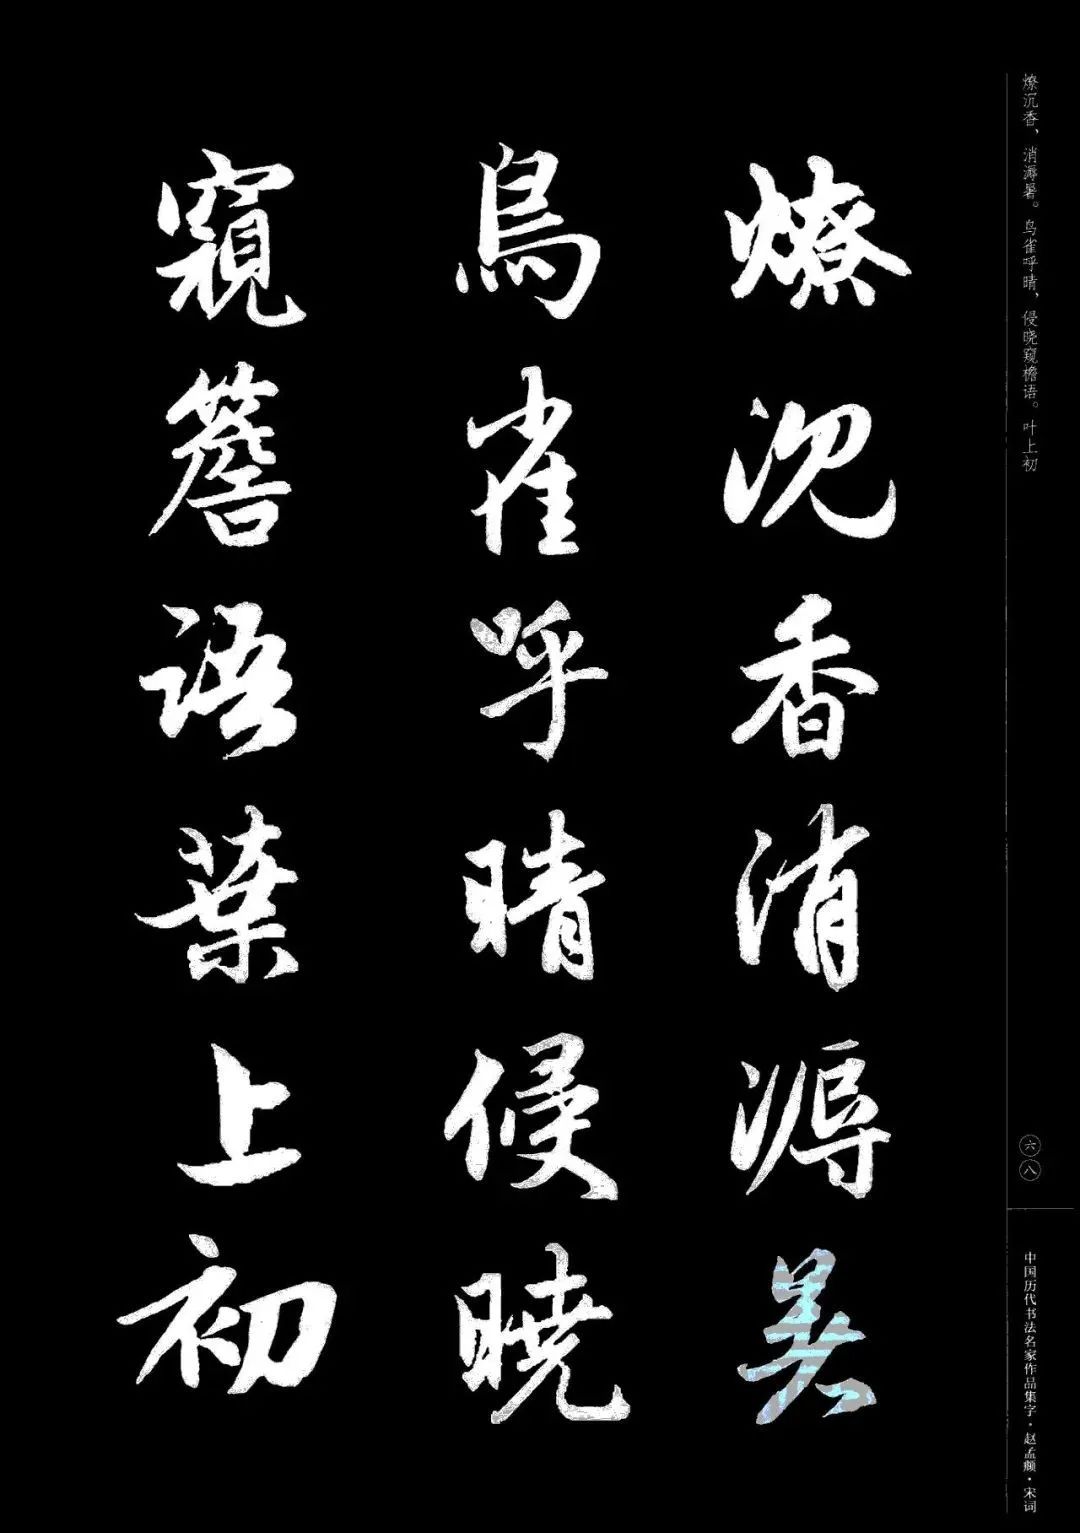 燎沉香、消溽暑。鸟雀呼晴，侵晓窥檐语。叶上初
六八
中国历代书法名家作品集字·赵孟頫·宋词
燎沉香消溽暑
鳥雀呼晴侵曉
窺簷語葉上初